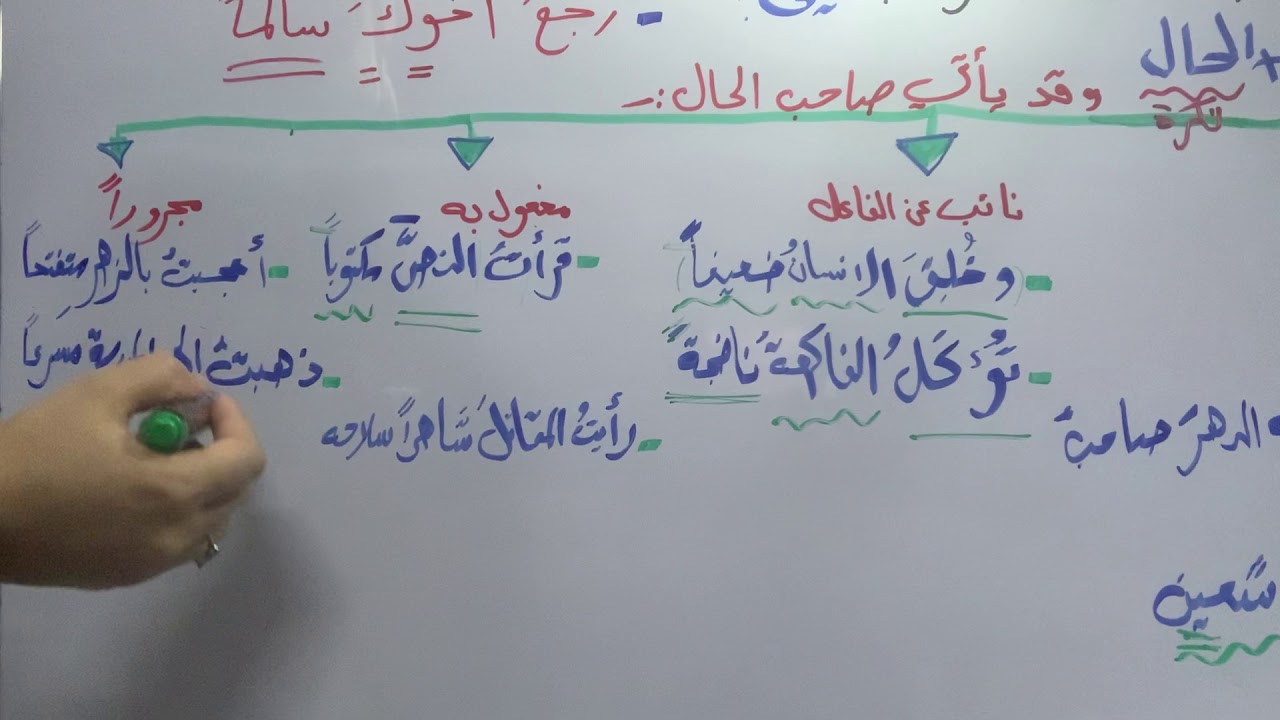 - رجعَ أخوكَ سالماً
+ الحال
نكرة
وقد يأتي صاحب الحال:-
نائب عن الفاعل
- (وخُلِقَ الإنسانُ ضعيفاً)
- تُؤكَلُ الفاكهةُ ناضجةً
مفعول به
- قرأتُ النصَّ مكتوباً
- رأيتُ المقاتلَ شاهراً سلاحه
مجروراً
- أعجبتُ بالزهرِ متفتحاً
- ذهبتُ مسرعاً
الدهرَ صاحبَ